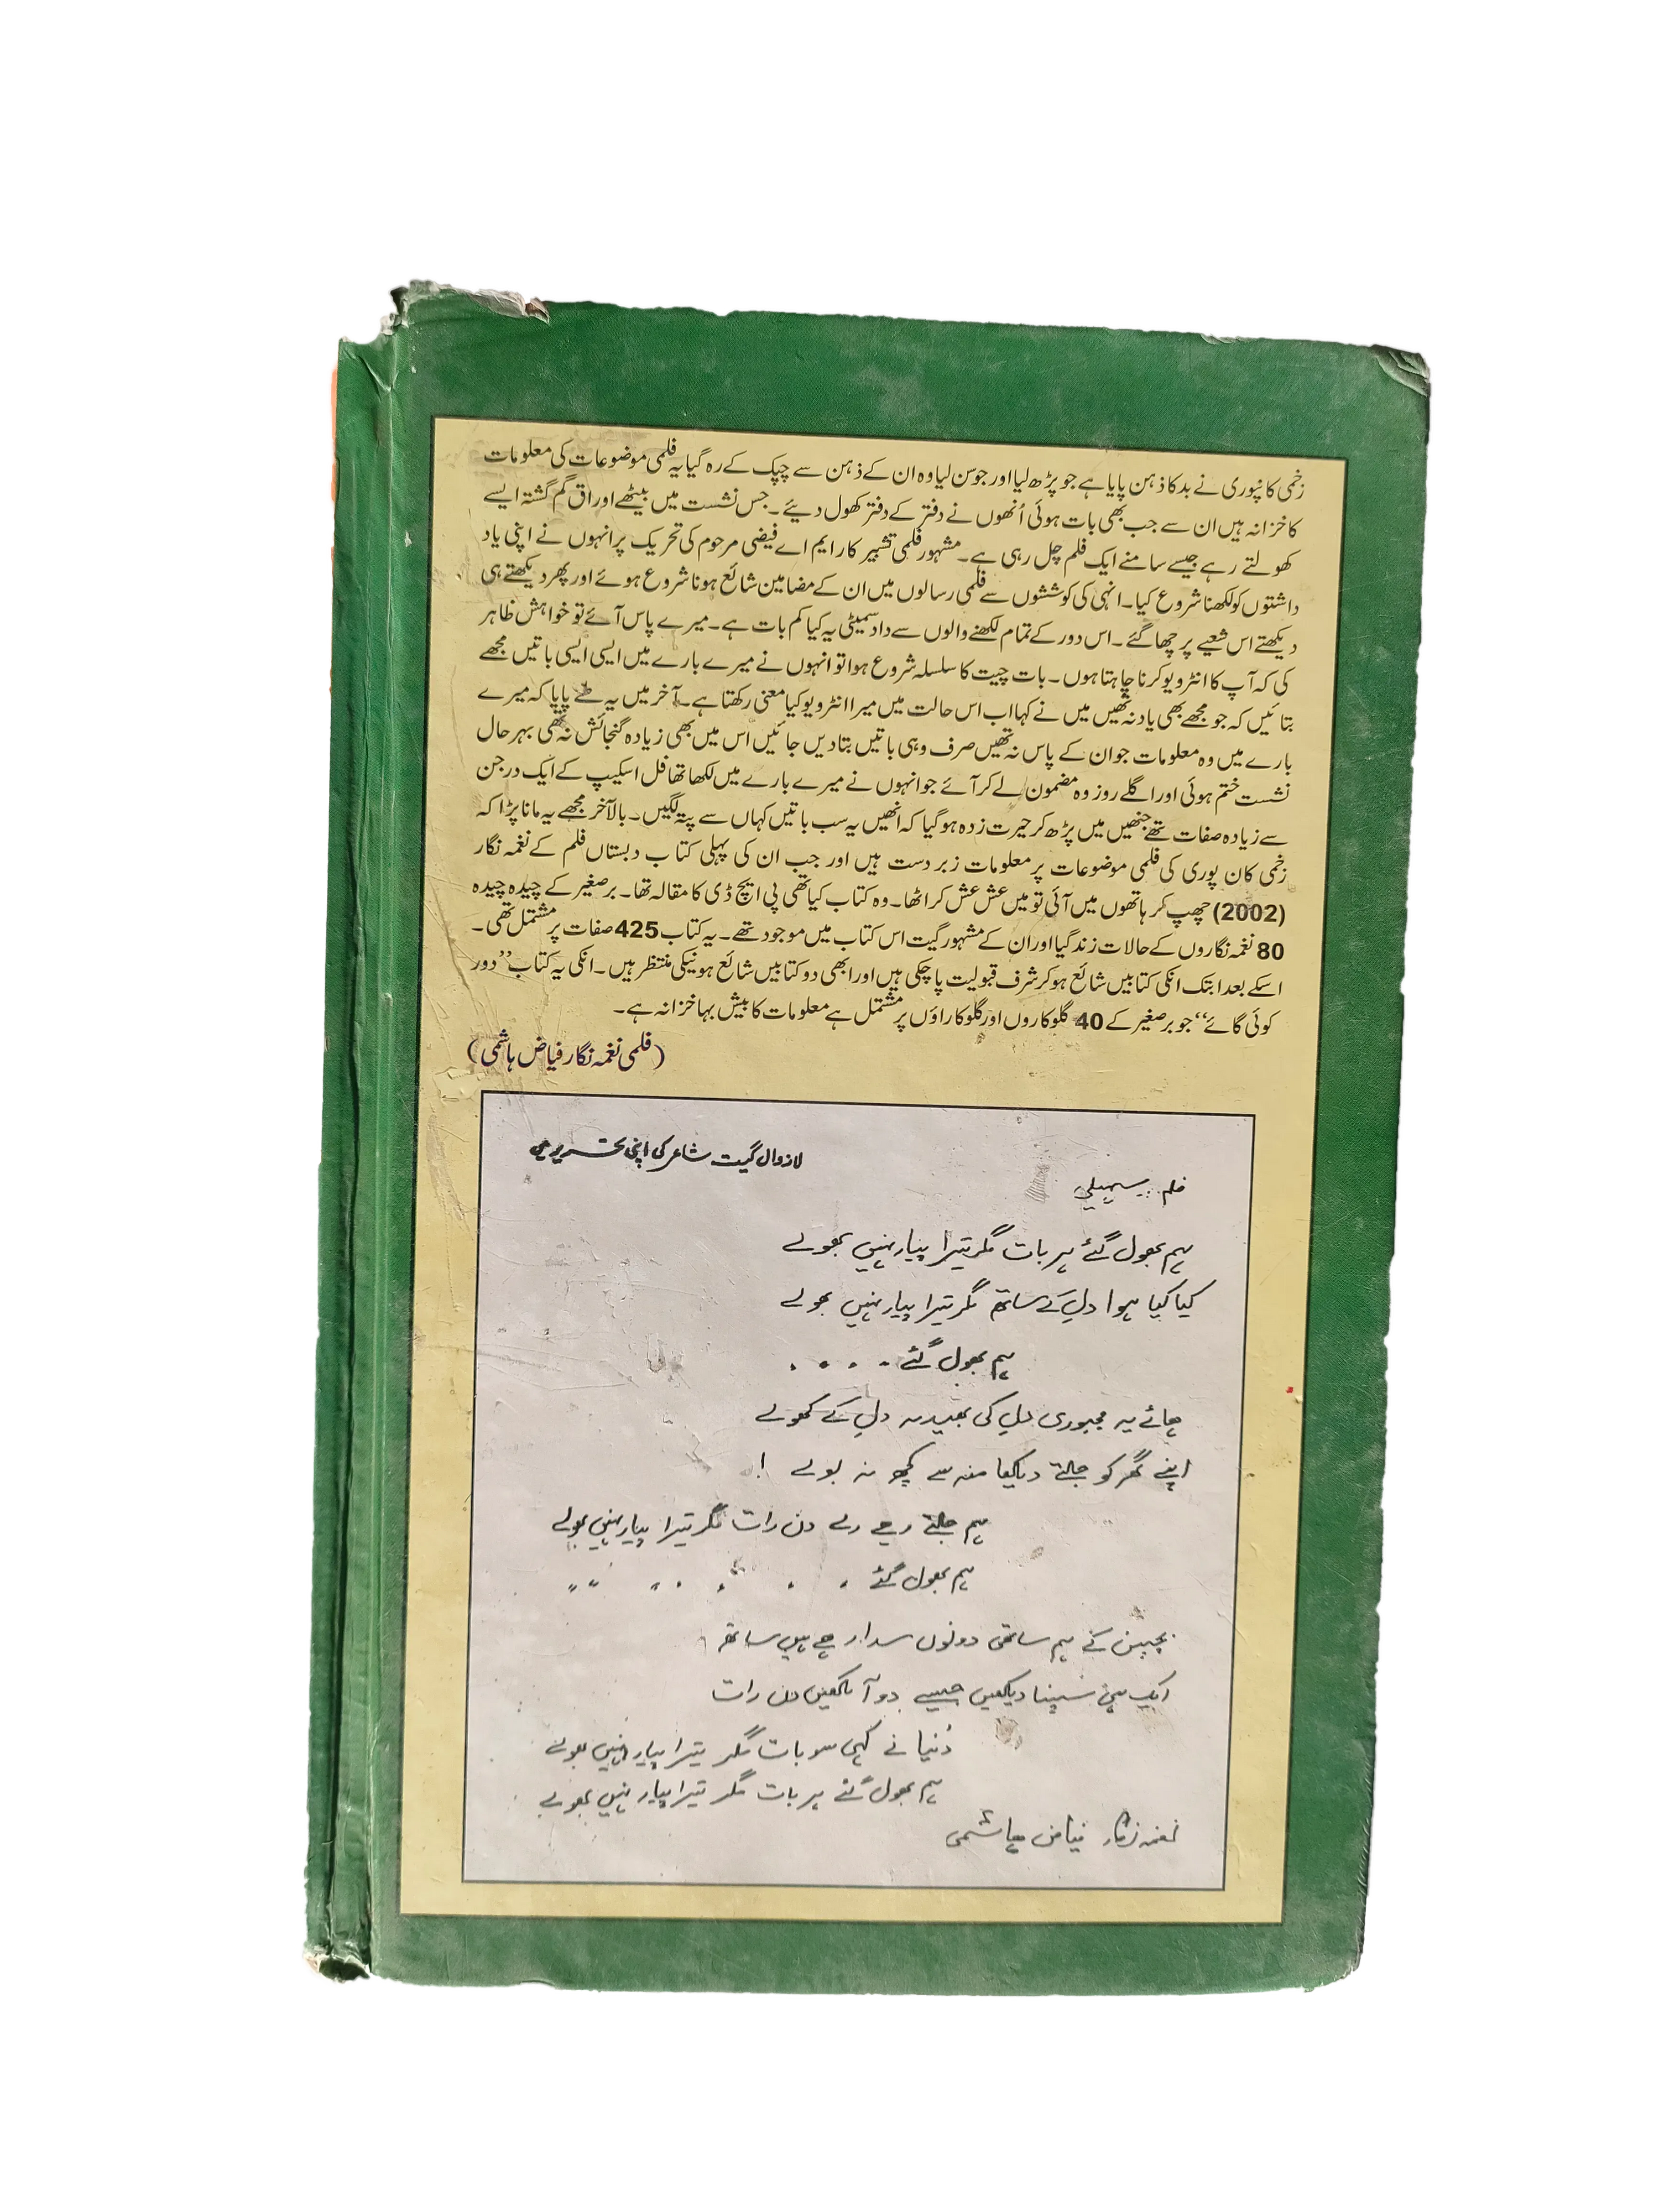 زخمی کانپوری نے بدکا ذہن پایا ہے جو پڑھ لیا اور جو سن لیا وہ ان کے ذہن سے چپک کے رہ گیا یہ فلمی موضوعات کی معلومات
کا خزانہ ہیں ان سے جب بھی بات ہوئی اُنھوں نے دفتر کے دفتر کھول دیئے۔ جس نشست میں بیٹھے اوراق گم گشتہ ایسے
کھولتے رہے جیسے سامنے ایک فلم چل رہی ہے۔ مشہور فلمی تشہیر کار ایم اے فیضی مرحوم کی تحریک پر انہوں نے اپنی یاد
داشتوں کو لکھنا شروع کیا۔ انہی کی کوششوں سے فلمی رسالوں میں ان کے مضامین شائع ہونا شروع ہوئے اور پھر دیکھتے ہی
دیکھتے اس شعبے پر چھا گئے۔ اس دور کے تمام لکھنے والوں سے داد سمیٹی یہ کیا کم بات ہے۔ میرے پاس آئے تو خواہش ظاہر
کی کہ آپ کا انٹرویو کرنا چاہتا ہوں۔ بات چیت کا سلسلہ شروع ہوا تو انہوں نے میرے بارے میں ایسی ایسی باتیں مجھے
بتائیں کہ جو مجھے بھی یاد نہ تھیں میں نے کہا اب اس حالت میں میرا انٹرویو کیا معنی رکھتا ہے۔ آخر میں یہ طے پایا کہ میرے
بارے میں وہ معلومات جو ان کے پاس نہ تھیں صرف وہی باتیں بتا دیں جائیں اس میں بھی زیادہ گنجائش نہ تھی بہرحال
نشست ختم ہوئی اور اگلے روز وہ مضمون لے کر آئے جو انہوں نے میرے بارے میں لکھا تھا فل اسکیپ کے ایک درجن
سے زیادہ صفات تھے جنھیں میں پڑھ کر حیرت زدہ ہو گیا کہ انھیں یہ سب باتیں کہاں سے پتہ لگیں۔ بالآخر مجھے یہ مانا پڑا کہ
زخمی کان پوری کی فلمی موضوعات پر معلومات زبردست ہیں اور جب ان کی پہلی کتاب دبستاں فلم کے نغمہ نگار
(2002) چھپ کر ہاتھوں میں آئی تو میں عش عش کر اٹھا۔ وہ کتاب کیا تھی پی ایچ ڈی کا مقالہ تھا۔ برصغیر کے چیدہ چیدہ
80 نغمہ نگاروں کے حالات زندگیا اور ان کے مشہور گیت اس کتاب میں موجود تھے۔ یہ کتاب 425 صفات پر مشتمل تھی۔
اسکے بعد ابتک انکی کتابیں شائع ہو کر شرف قبولیت پا چکی ہیں اور ابھی دو کتابیں شائع ہونیکی منتظر ہیں۔ انکی یہ کتاب ’’دور
کوئی گائے‘‘ جو برصغیر کے 40 گلوکاروں اور گلوکاراؤں پر مشتمل ہے معلومات کا بیش بہا خزانہ ہے۔
(فلمی نغمہ نگار فیاض ہاشمی)
لازوال گیت شاعر کی اپنی تحریر میں
فلم: سہیلی
ہم بھول گئے ہر بات مگر تیرا پیار نہیں بھولے
کیا کیا ہوا دل کے ساتھ مگر تیرا پیار نہیں بھولے
ہم بھول گئے ۔ ۔ ۔ ۔
ہائے یہ مجبوری دل کی بھید نہ دل کے کھولے
اپنے گھر کو جلتے دیکھا منہ سے کچھ نہ بولے !
ہم جلتے رہے دن رات مگر تیرا پیار نہیں بھولے
ہم بھول گئے ۔ ۔ ۔ ۔ ۔ ۔
بچپن کے ہم ساتھی دونوں سدا رہے ہیں ساتھ
ایک ہی سپنا دیکھیں جیسے دو آنکھیں دن رات
دُنیا نے کہی سو بات مگر تیرا پیار نہیں بھولے
ہم بھول گئے ہر بات مگر تیرا پیار نہیں بھولے
نغمہ نگار فیاض ہاشمی